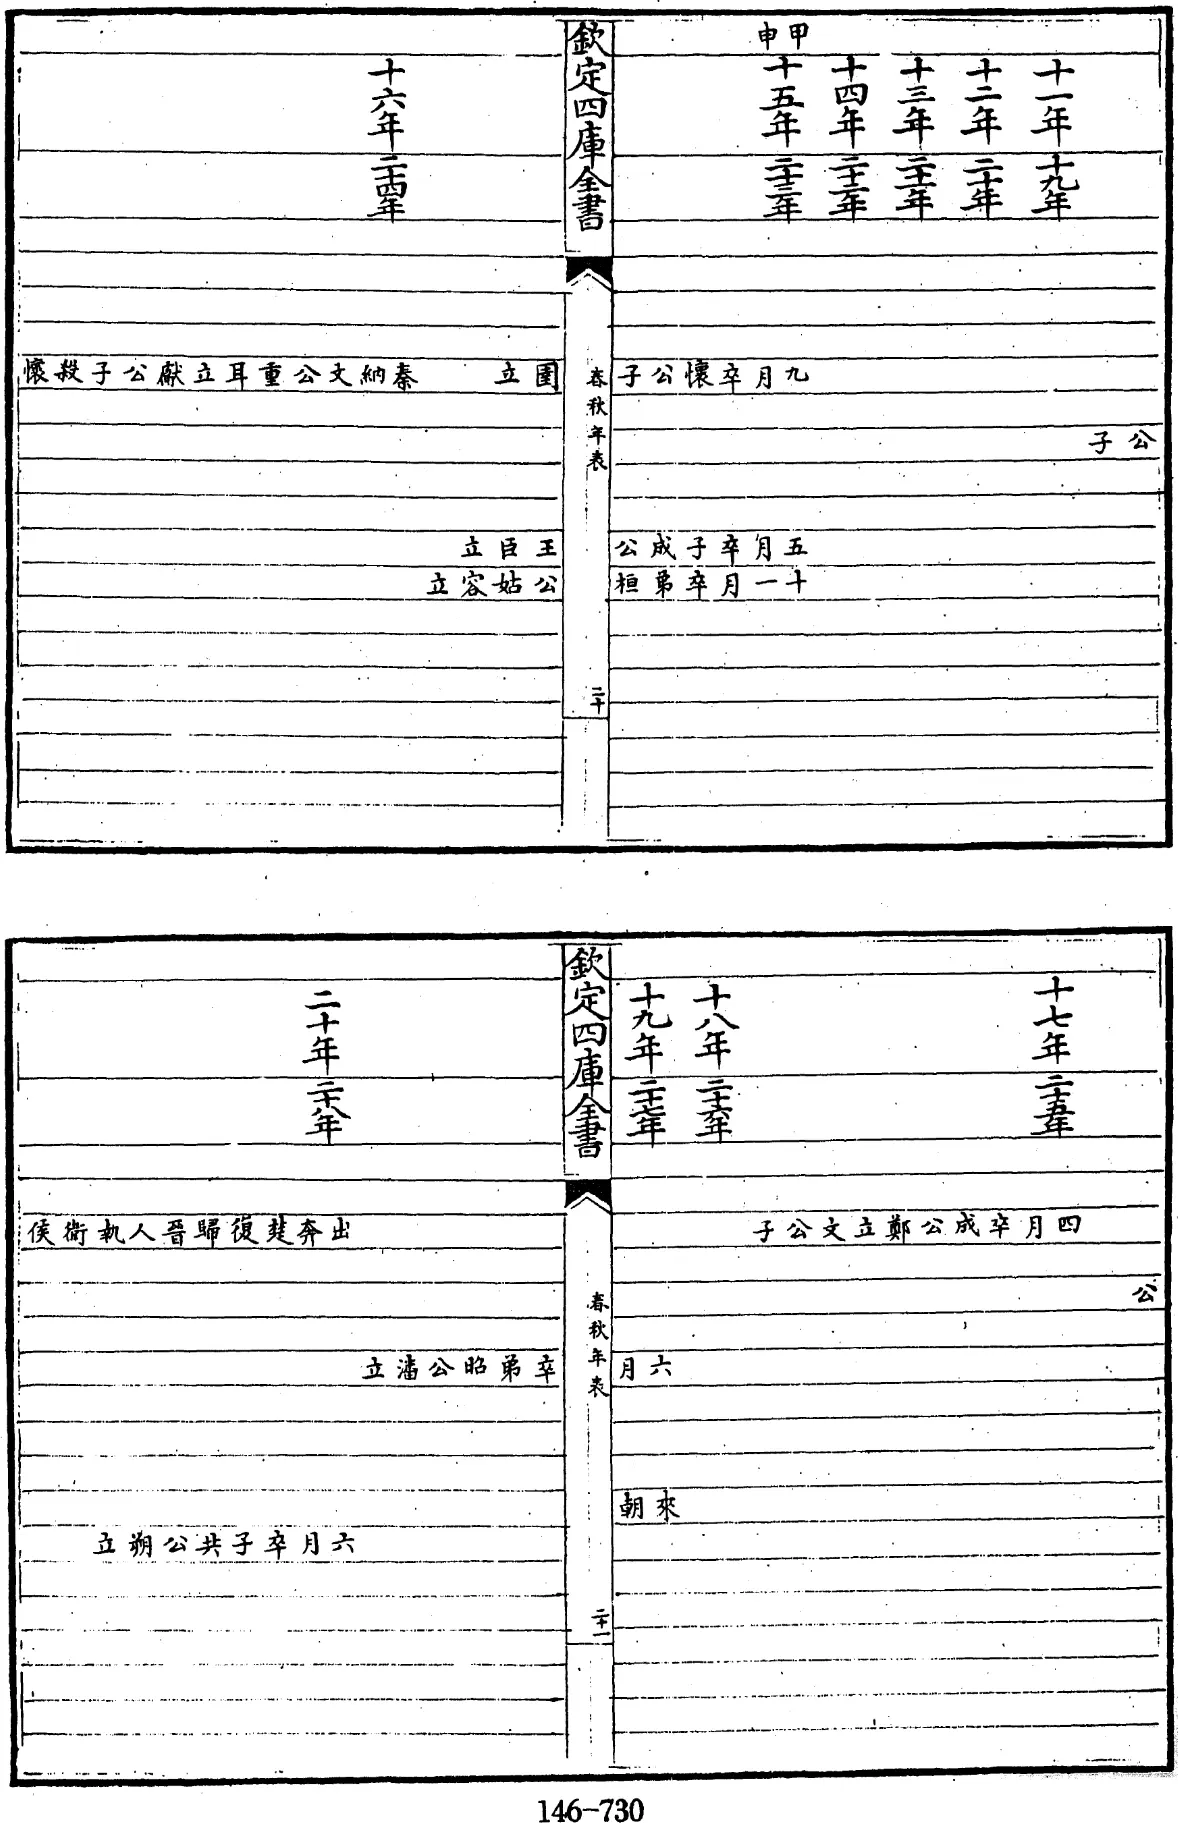 甲申
十一年 十九年
十二年 二十年
十三年 二十一年
十四年 二十二年
十五年 二十三年
九月卒懷公子
公子
五月卒子成公
十一月卒弟桓
欽定四庫全書
春秋年表
二十
十六年 二十四年
圉立 秦納文公重耳立獻公子殺懷
王臣立
公姑容立
十七年 二十五年
十八年 二十六年
十九年 二十七年
四月卒成公鄭立文公子
公
六月
來朝
欽定四庫全書
春秋年表
二十一
二十年 二十八年
出奔楚復歸晉人執衛侯
卒弟昭公潘立
六月卒子共公朔立
146-730